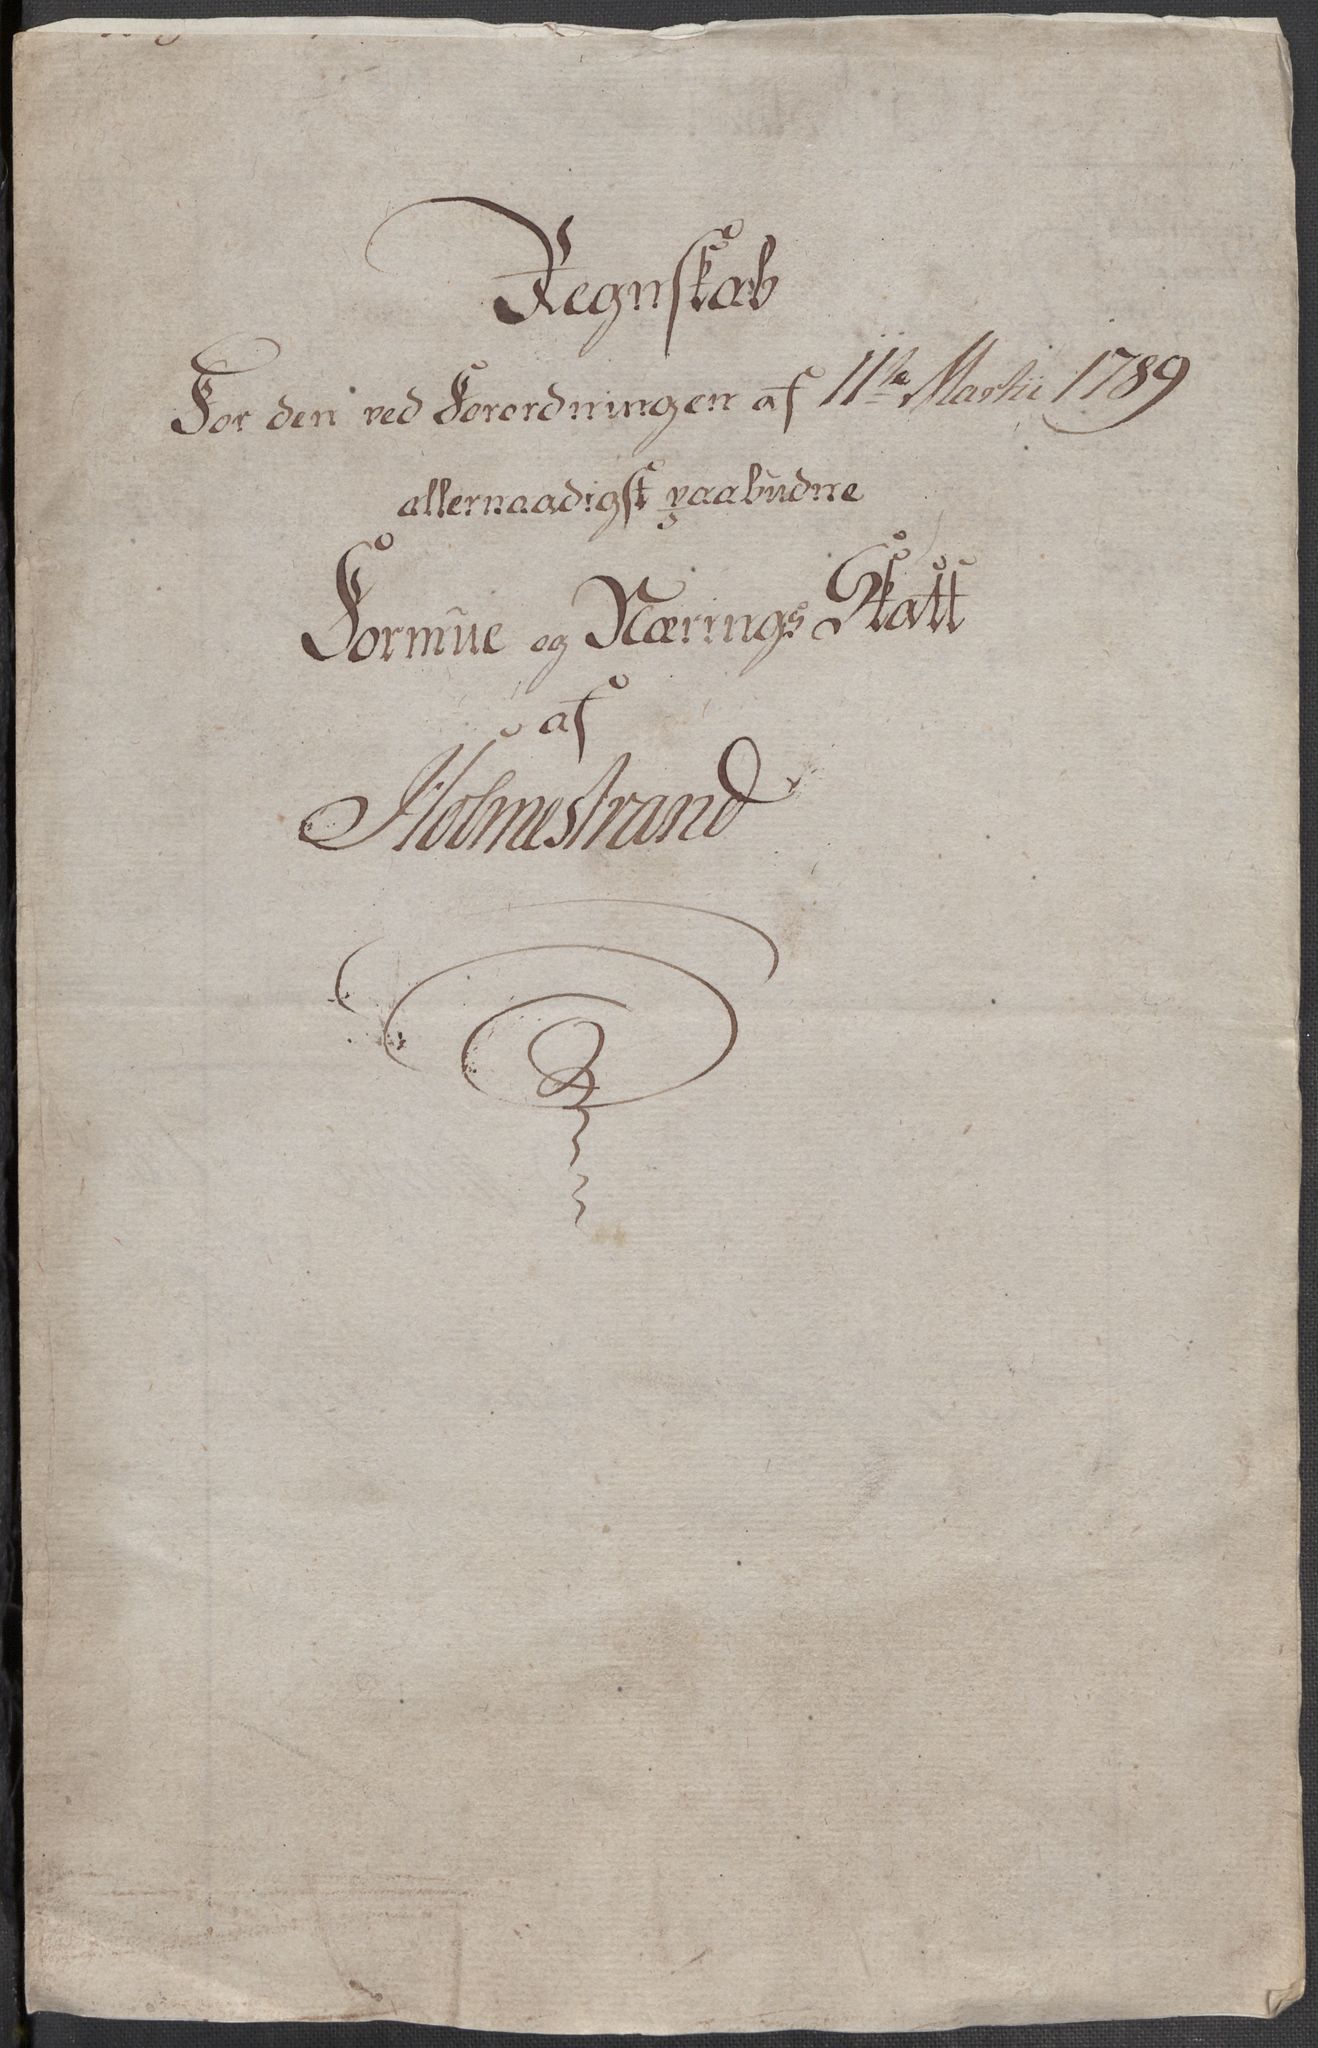 Regnskab
For den ved Forordningen af 11te Martii 1789
allernaadigst paabudne
Formue og Nærings Skatt
af
Holmestrand